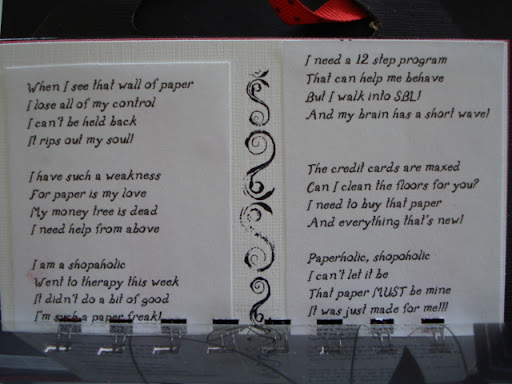 When I see that wall of paper
I lose all of my control
I can't be held back
It rips out my soul!
I have such a weakness
For paper is my love
My money tree is dead
I need help from above
I am a shopaholic
Went to therapy this week
It didn't do a bit of good
I'm such a paper freak!
I need a 12 step program
That can help me behave
But I walk into SBL!
And my brain has a short wave!
The credit cards are maxed
Can I clean the floors for you?
I need to buy that paper
And everything that's new!
Paperholic, shopoholic
I can't let it be
That paper MUST be mine
It was just made for me!!!